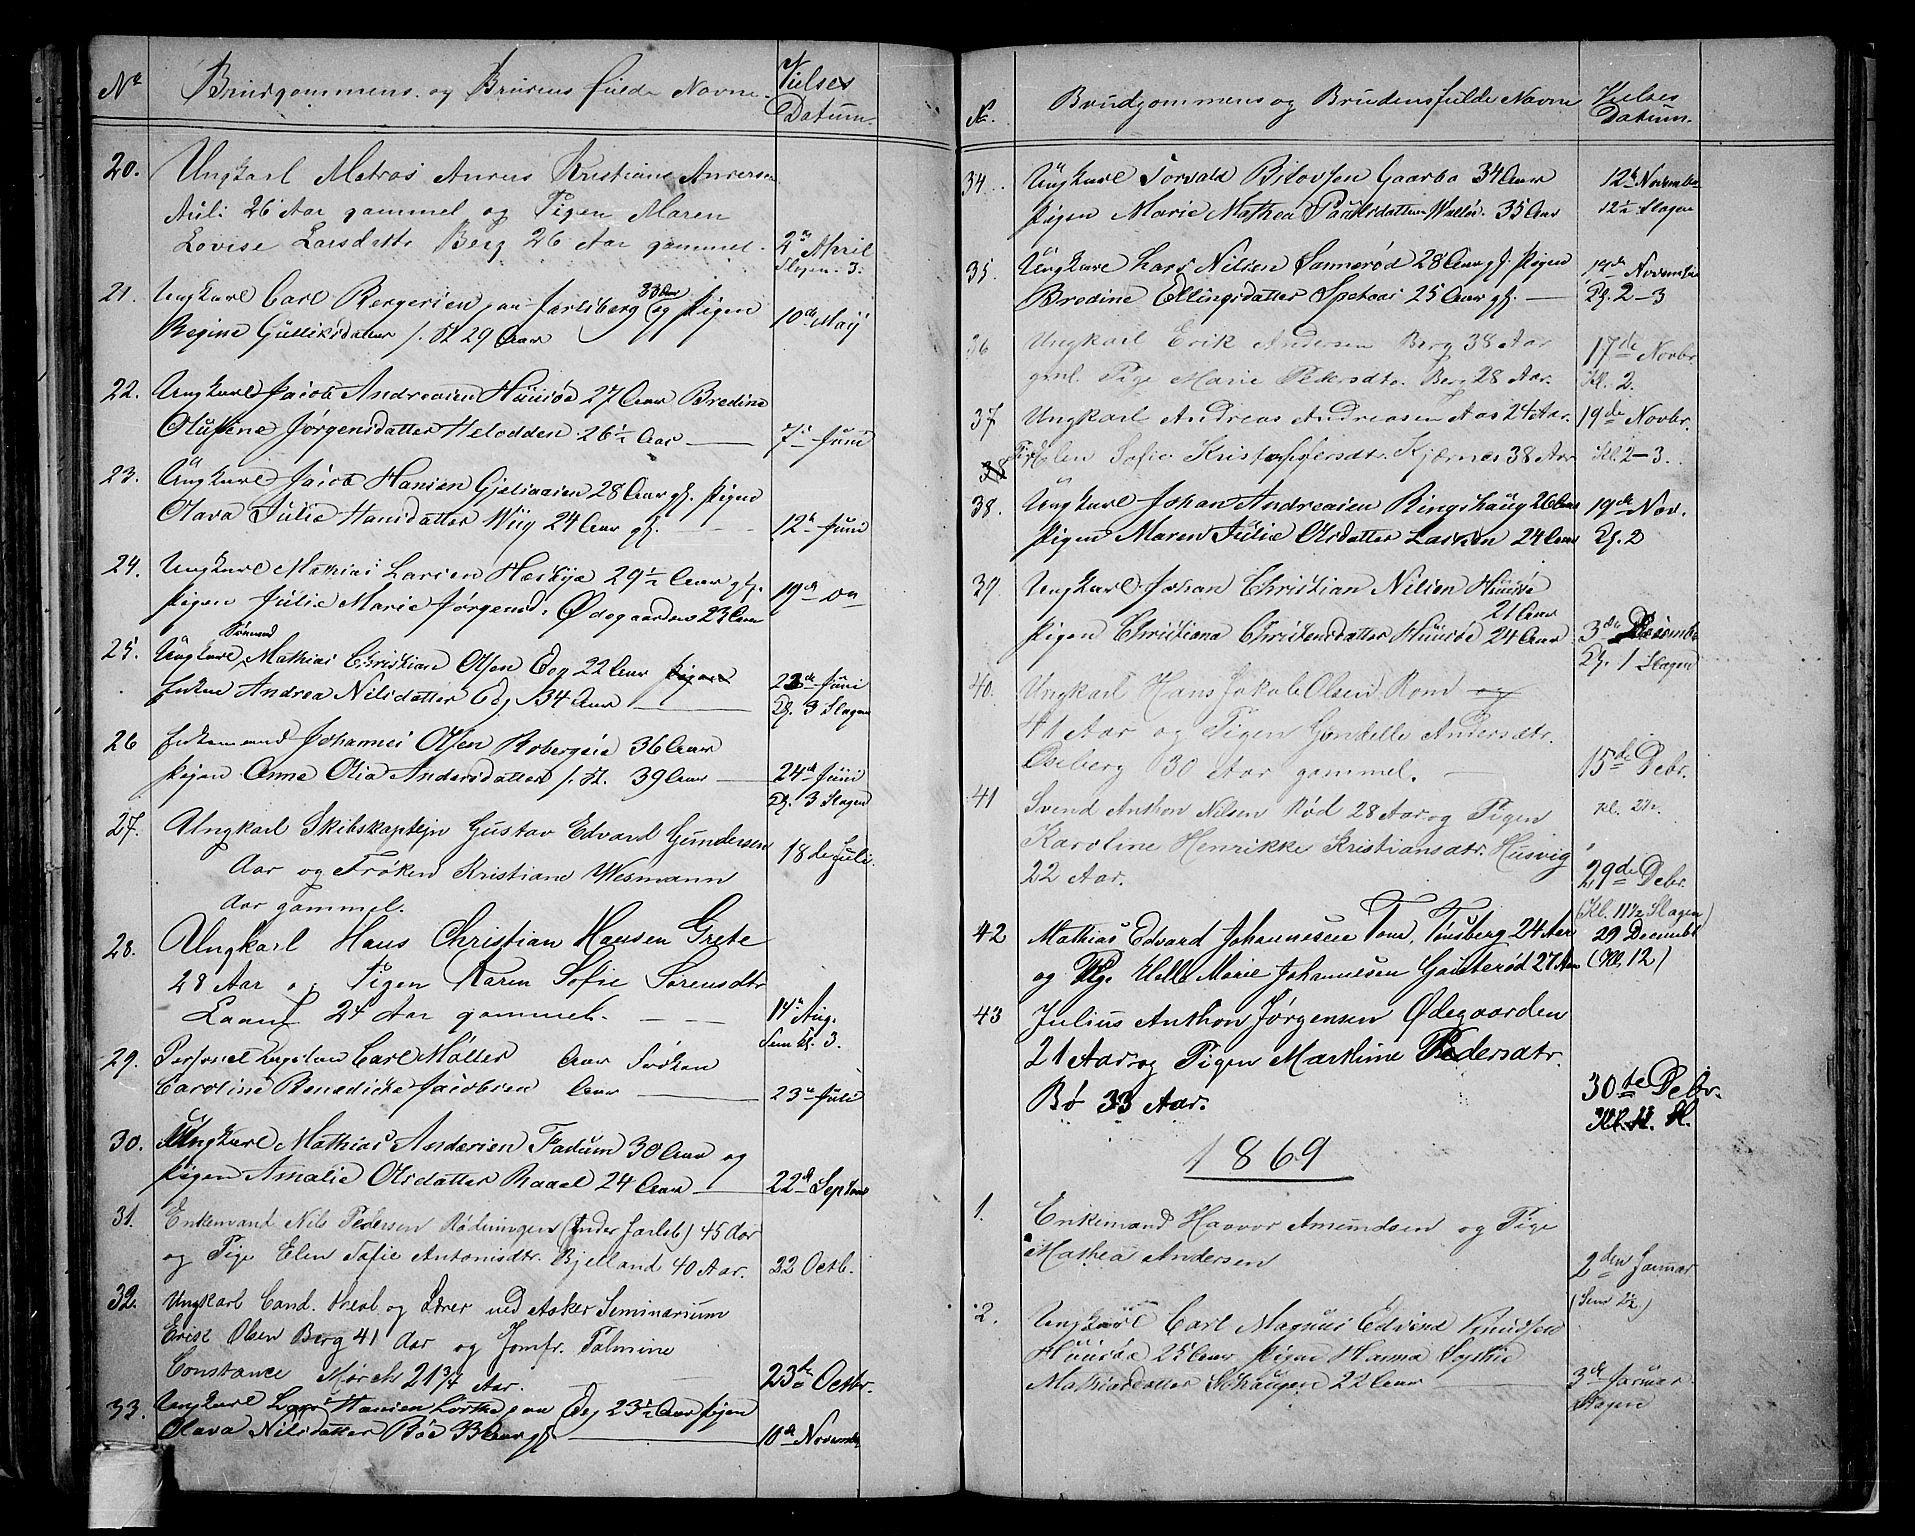 Nº Brudgommens og Brudens fulde Navne. Vielses Datum.
20. Ungkarl Matros Anders Kristians Andersen
Auli 26 Aar gammel og Pigen Maren
Lovise Larsdattr Berg 26 Aar gammel. 2den April
Slagen. 3.
21. Ungkarl Carl Bergersen paa Jarlsberg 33 Aar og Pigen
Regine Gulliksdatter 29 Aar 10de Maij
22. Ungkarl Jacob Andreasen Huusøe 27 Aar Bredine
Jørgensdatter 26½ Aar 7de Juni
23. Ungkarl Jacob Hansen 28 Aar gl. Pigen
Olava Julie Hansdatter Wiig 24 Aar gl. 12te Juni
24. Ungkarl Mathias Larsen 29½ Aar gl.
Pigen Julie Marie Jørgensd. Ødegaarden 23 Aar 19de
25. Ungkarl Sømand Mathias Christian Olsen Eeg 22 Aar Pigen
Enken Andrea Nilsdatter Eeg 34 Aar 23de Juni
Kl. 3 Slagen
26 Enkemand Johannes Olsen 36 Aar
Pigen Anne Olia Andersdatter 39 Aar 24de Juni
Kl. 3 Slagen
27. Ungkarl Skibskaptejn Gustav Edvard Gundersen
Aar og Frøken Kristiane Wesmann 18de Juli.
Aar gammel.
28. Ungkarl Hans Christian Hansen Grete
28 Aar og Pigen Karen Sofie Sørensdtr
24 Aar gammel. 14de Aug.
Sem Kl. 3.
29. Carl Møller Aar Frøken
Caroline Benedicte Jacobsen Aar 23de Juli
30. Ungkarl Mathias Andersen Fadum 30 Aar og
Pigen Amalie Olsdatter Raael 24 Aar 22de Septbr
31. Enkemand Nils Pedersen Rødningen (under Jarlsb) 45 Aar
og Pige Elen Sofie Antonisdtr. Bjelland 40 Aar. 22 Octb.
32. Ungkarl Cand. theol og Lærer ved Asker Seminarium
Erik Olsen Berg 41 Aar og Jomfr. Palmine
Constance Mørch 21¾ Aar. 23de Octbr.
33. Ungkarl Lars Hansen paa Eeg 23½ Aar Pigen
Olava Nilsdatter Bøe 10de November
Nº. Brudgommens og Brudens fulde Navne Vielses Datum.
34. Ungkarl Torvald Gaarbo 34 Aar 12te November
Pigen Marie Mathea Paulsdatter Walløe. 35 Aar 12½ Slagen
35. Ungkarl Lars Nilsen Sannerød 28 Aar gl. Pigen 19de November
Bredine Ellingsdatter 25 Aar gl. Kl. 2-3
36 Ungkarl Erik Andersen Berg 38 Aar 17de Novbr.
gml. Pige Marie Pedersdtr. Berg 28 Aar. Kl. 2.
37 Ungkarl Andreas Andreasen Aas 24 Aar. 19de Novbr.
38 Pig. Elen Sofie Kristoffersdtr. Kjærnes 38 Aar Kl. 2-3.
38. Ungkarl Johan Andreasen Ringshaug 26 Aar 19de Nov.
Pigen Maren Julie Olsdatter 24 Aar Kl. 2
39 Ungkarl Johan Christian Nilsen Huusøe
21 Aar
Pigen Christiana Christensdatter Huusøe 24 Aar 3de Decembr
Kl. 1 Slagen
40. Ungkarl Hans Jakob Olsen Rom og
41 Aar og Pigen Andersdtr.
Oseberg 30 Aar gammel. 15de Debr.
41 Svend Anthon Nilsen Rød 28 Aar og Pigen Kl. 2½.
Karoline Henrikke Kristiansdtr. Husvig
22 Aar. 29de Debr.
(Kl. 11½ Slagen)
42 Mathias Edvard Johannesen Tom, Tønsberg 24 Aar 29 Decembr
og Pg. Helle Marie Johannesen Gauterød 27 Aar (Kl, 12)
43 Julius Anthon Jørgensen Ødegaarden
21 Aar og Pigen Marthine Pedersdtr.
Bø 33 Aar. 30te Debr.
1869
1. Enkemand Haavor Amundsen og Pige
Mathea Andersen 2den Januar
(Sem 2½)
2. Ungkarl Carl Magnus Edvind Knudsen
Huusøe 25 Aar Pigen Hanna Sophie
Mathiasdatter 22 Aar 3de Januar
Slagen